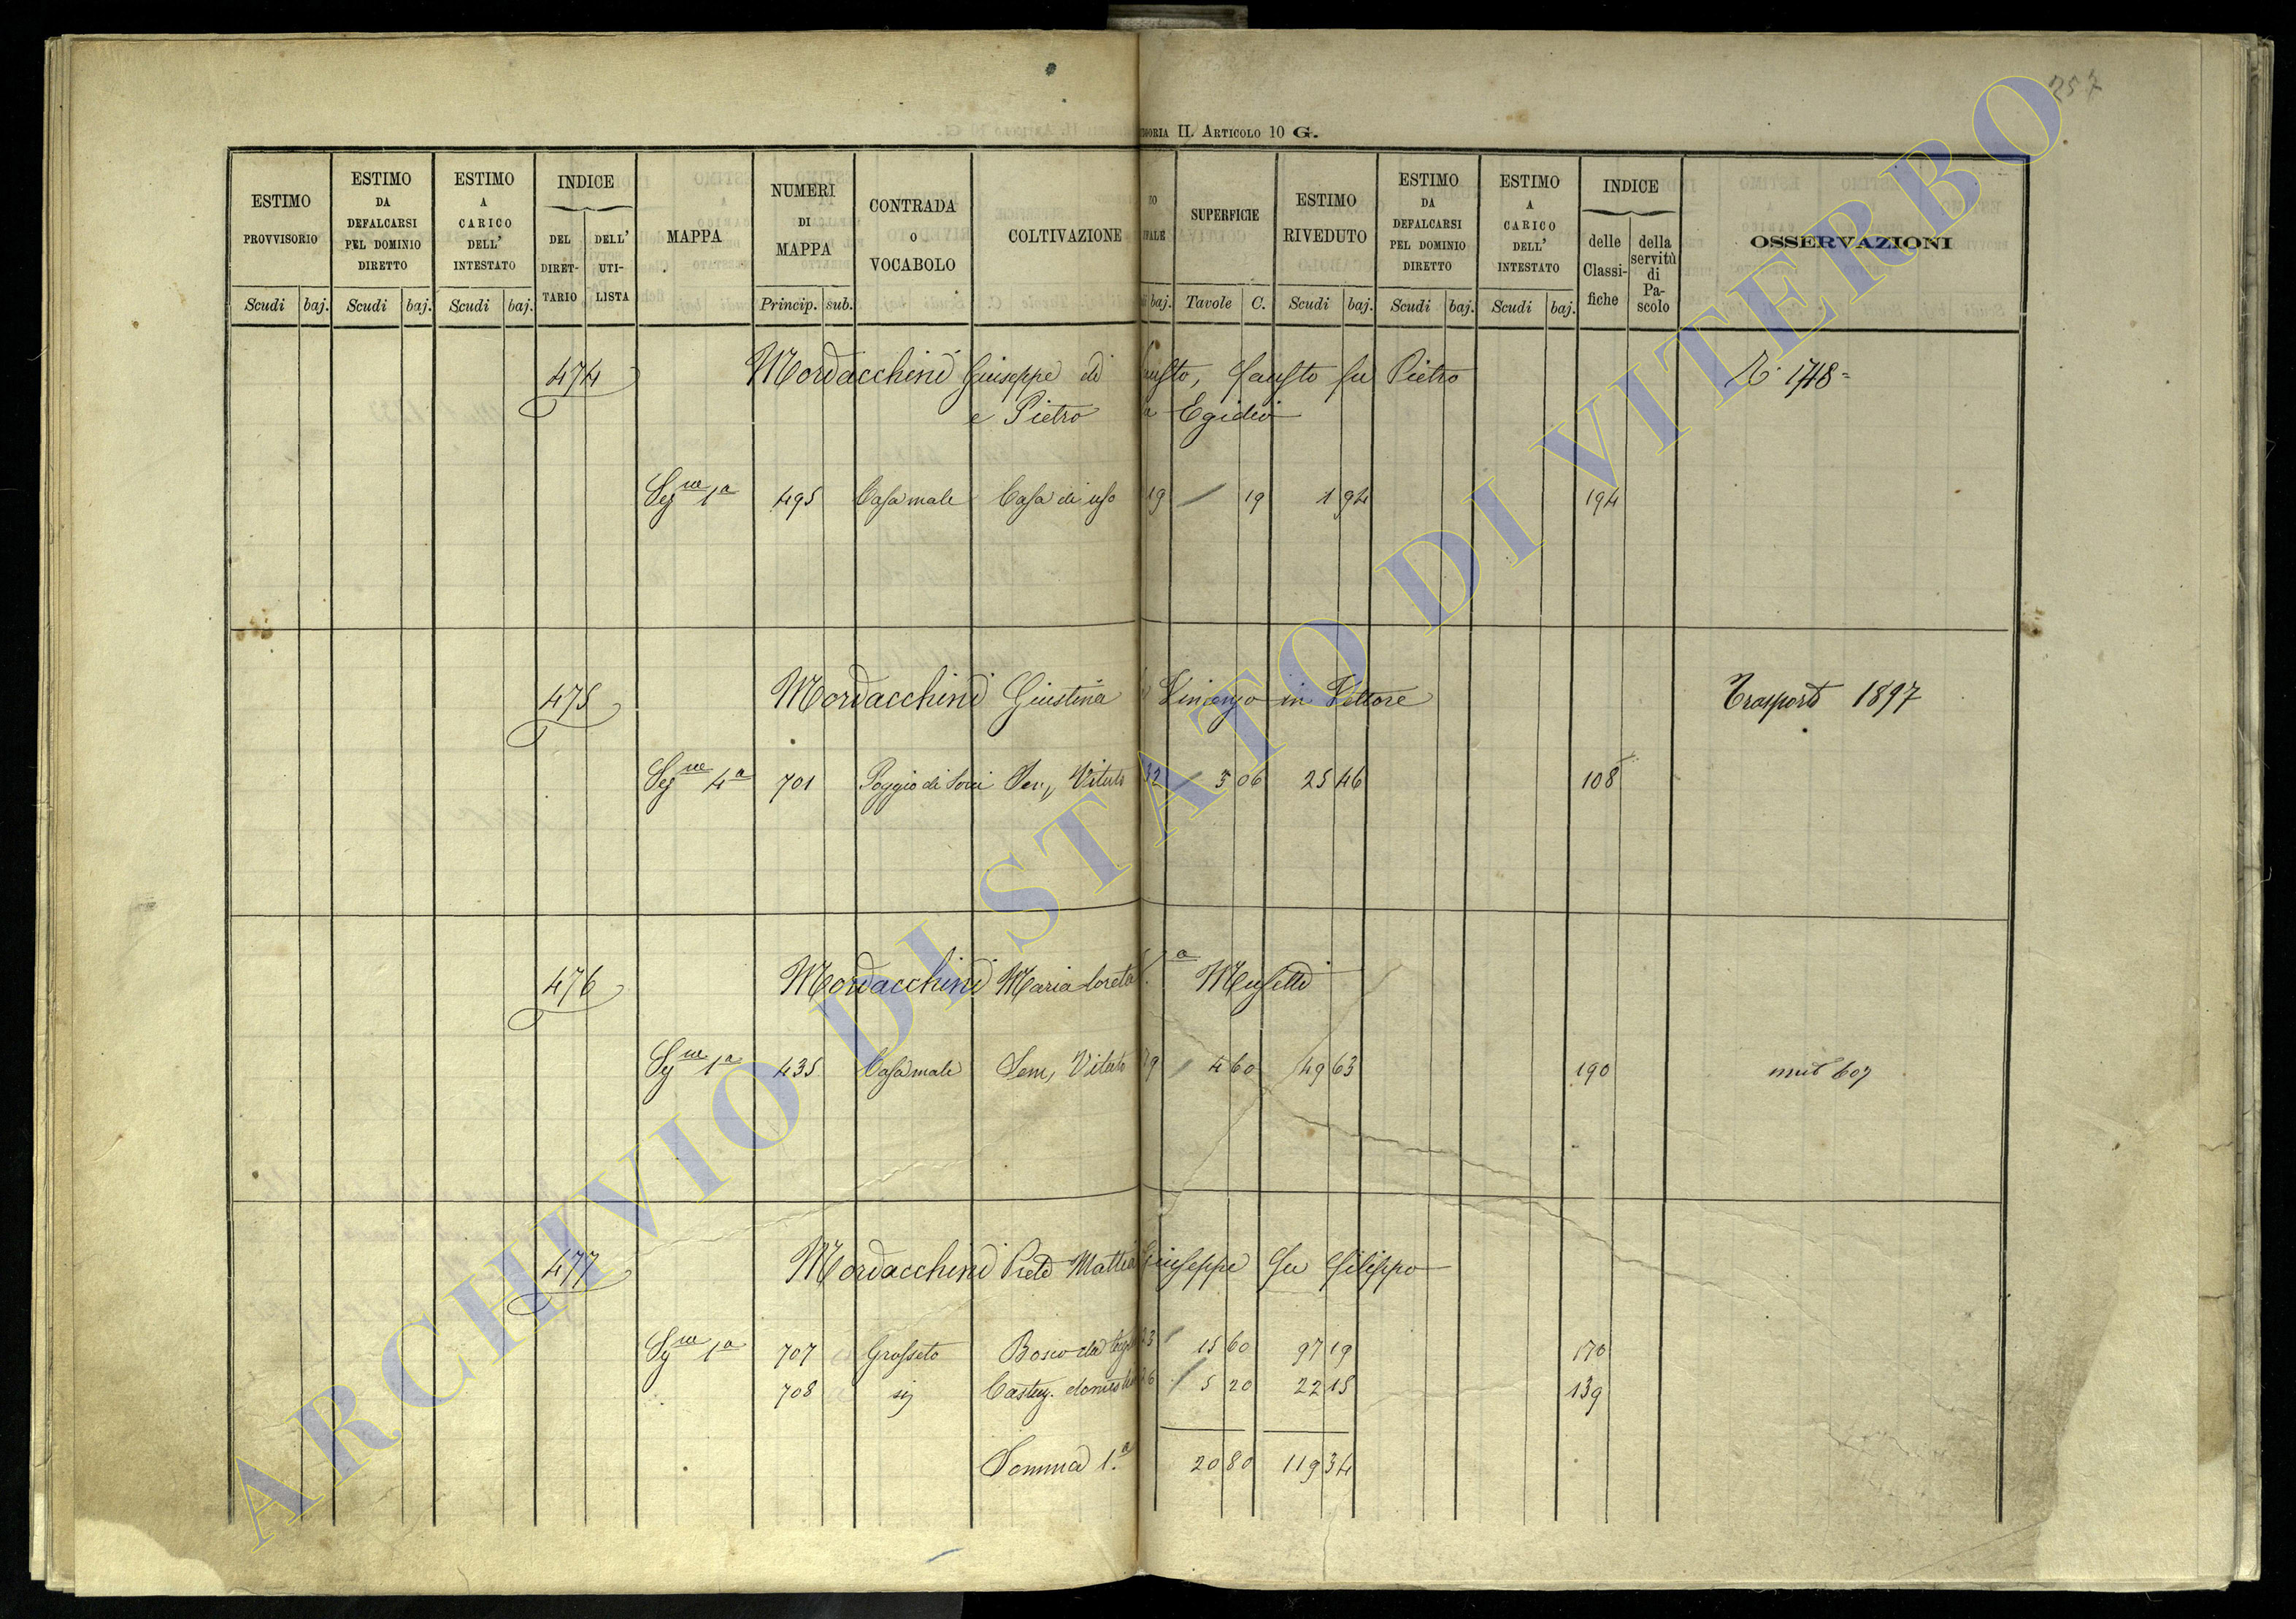 257
GORIA II. ARTICOLO 10 G.
ESTIMO PROVVISORIO
ESTIMO DA DEFALCARSI PEL DOMINIO DIRETTO
ESTIMO A CARICO DELL' INTESTATO
INDICE
DEL DIRETTARIO
DELL' UTILISTA
MAPPA
NUMERI DI MAPPA
CONTRADA O VOCABOLO
COLTIVAZIONE
SUPERFICIE
ESTIMO RIVEDUTO
ESTIMO DA DEFALCARSI PEL DOMINIO DIRETTO
ESTIMO A CARICO DELL' INTESTATO
INDICE
delle Classifiche
della servitù di Pascolo
OSSERVAZIONI
Scudi baj. Scudi baj. Scudi baj. Princip. sub. baj. Tavole C. Scudi baj. Scudi baj. Scudi baj.
474 Mordacchini Giuseppe di austo, Fausto fu Pietro N. 1748
e Pietro Egidio
Segne 1a 495 Casamale Casa di uso 19 19 1 94 194
475 Mordacchini Giustina Vincenzo in Vettore Trasporto 1897
Seg ne 4a 701 Poggio di Sem, Vitato 32 3 06 25 46 108
476 Mordacchini Maria Loreta Musetti
Sg ne 1a 435 Casamale Sem, Vitato 79 4 60 49 63 190
477 Mordacchini Mattia Giuseppe fu Filippo
Sg ne 1a 707 Grosseto Bosco da 23 15 60 97 19 170
708 sij Castag. domestico 26 5 20 22 15 139
Somma 1.a 20 80 119 34
ARCHIVIO DI STATO DI VITERBO